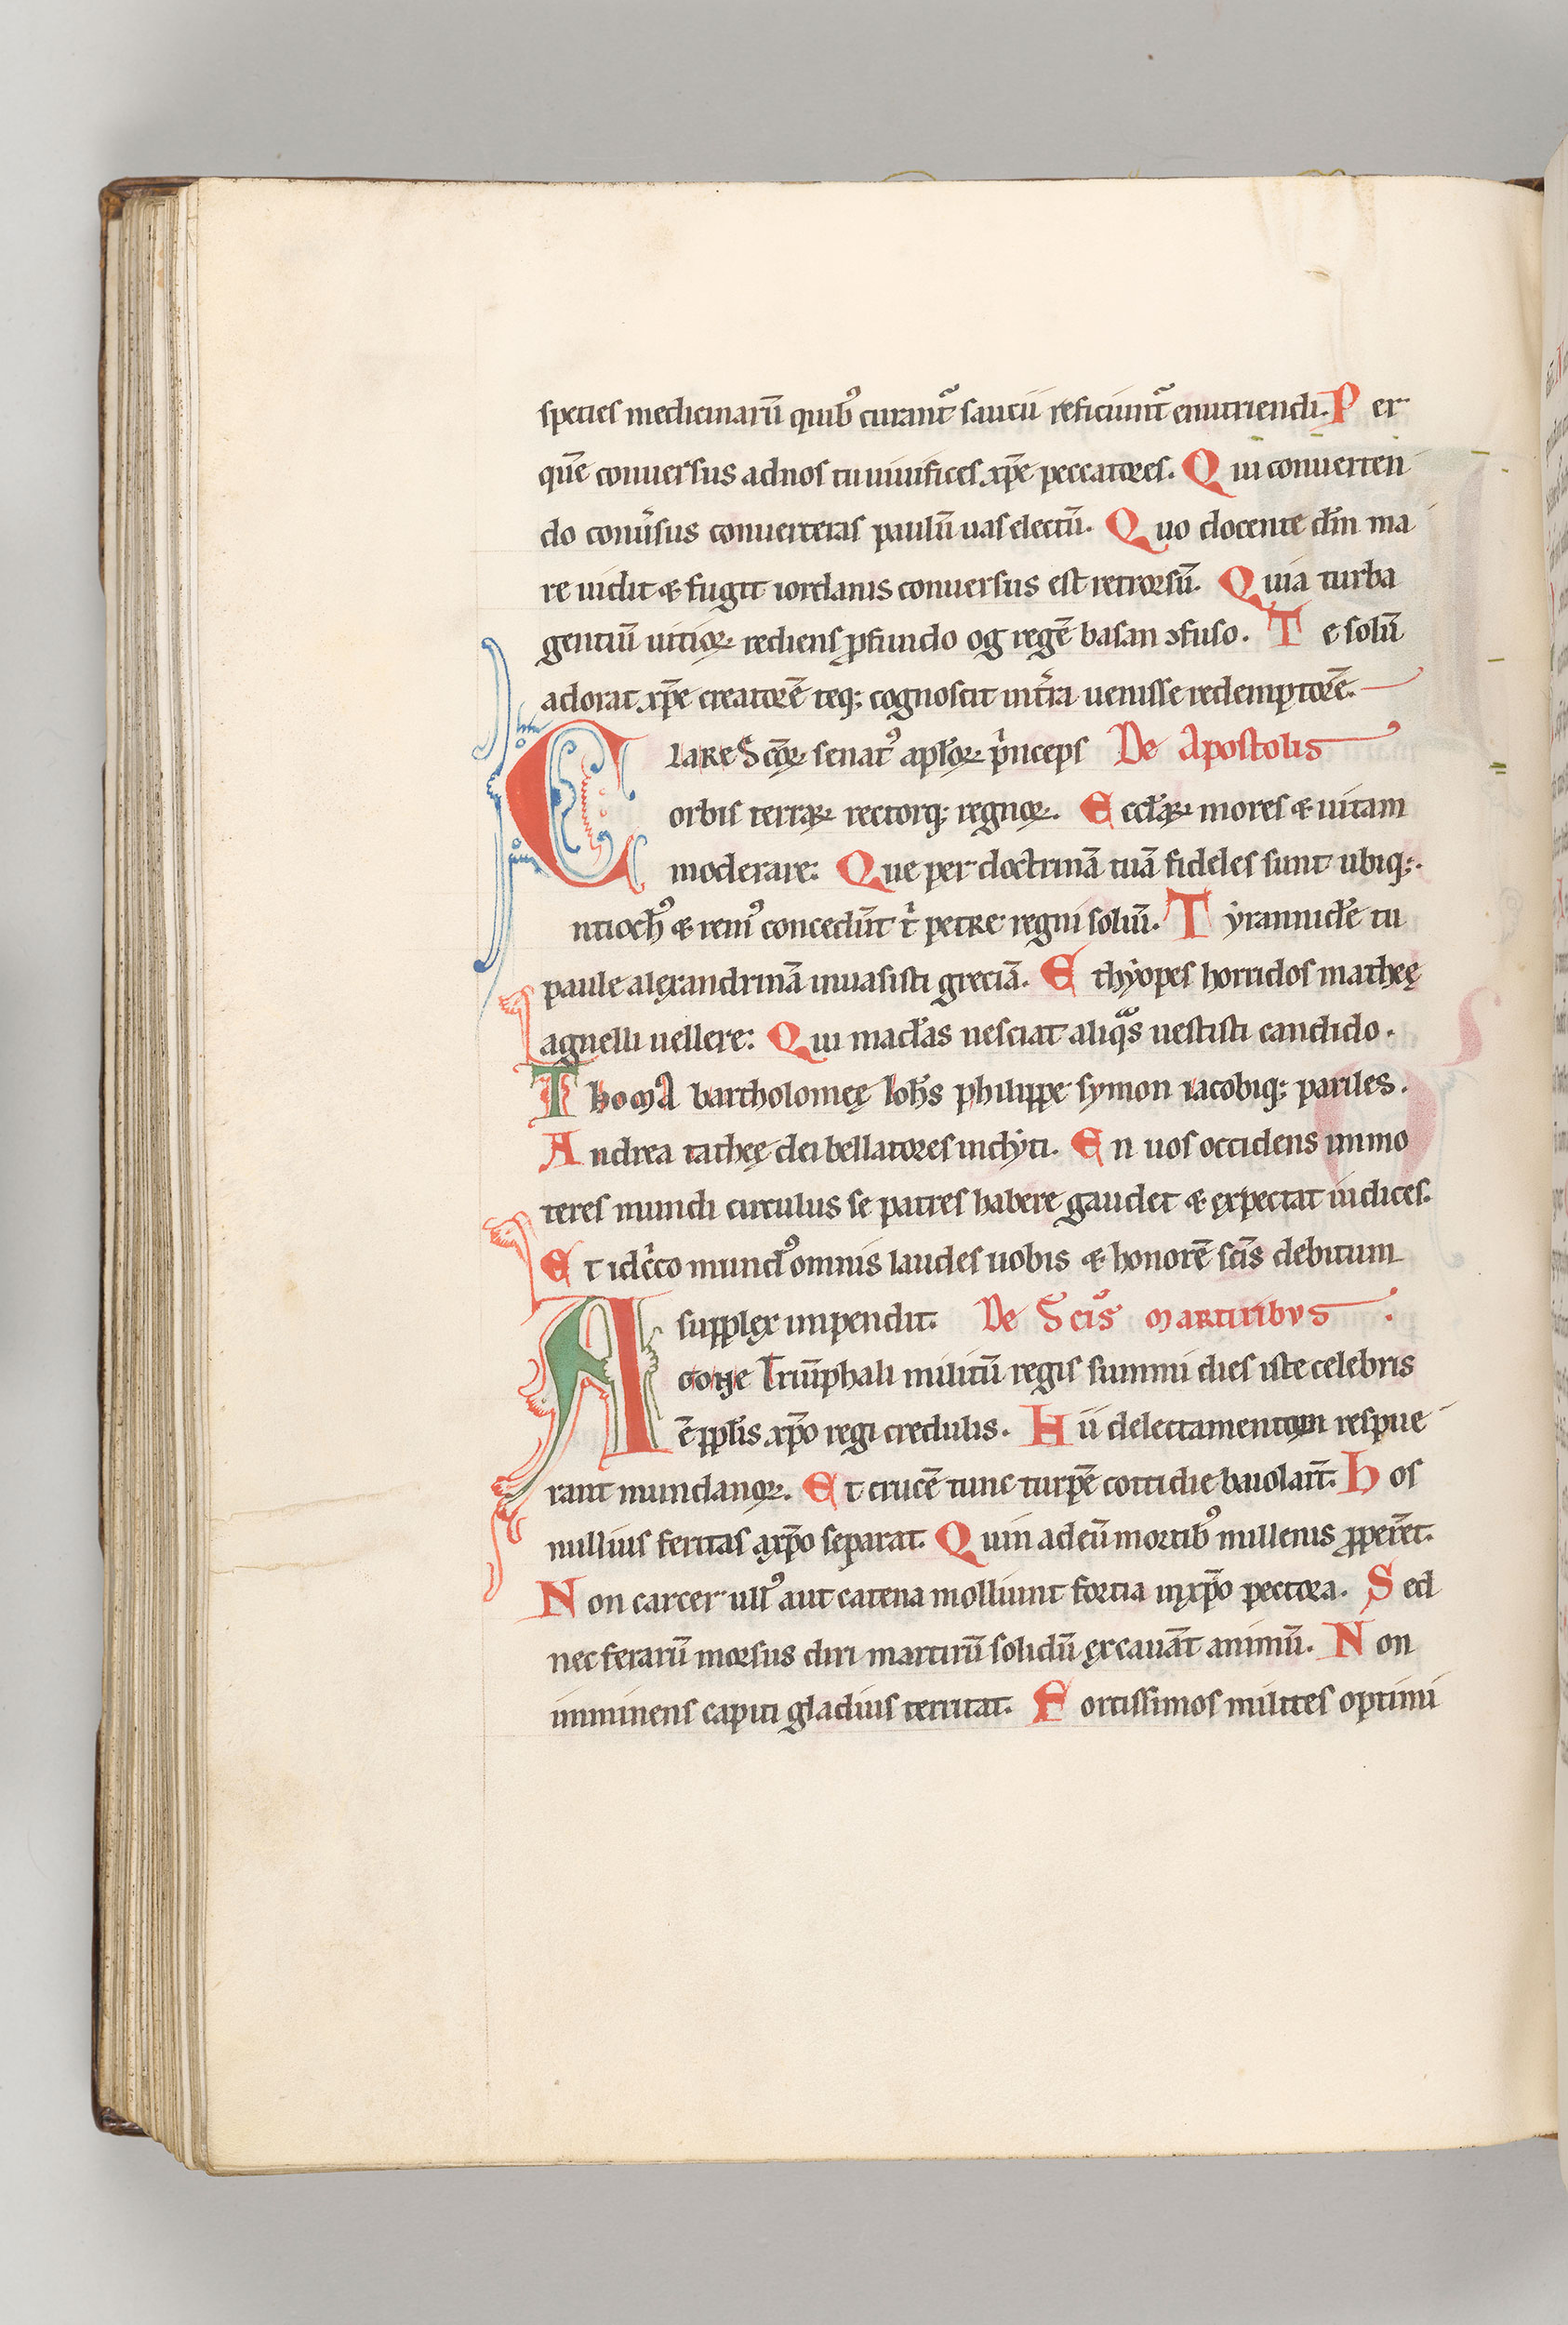 species medicinarū quibꝰ curant᷑ saucii reficiunt᷑ enutriendi. Per
quē conuersus ad nos tu uiuifices xp̄e peccatores. Qui conuerten
do conu͛sus conuerteras paulū uas electū. Quo docente dm̄ ma
re uidit & fugit iordanis conuersus est retrorsū. Quia turba
gentiū uitioꝝ rediens ꝓfundo og regē basan ɔfuso. Te solū
adorat xp̄e creatorē teq; cognoscit int͛ra uenisse redemptorē.
Clare Scōꝝ senatꝰ apl̄oꝝ pͥnceps De Apostolis
orbis terraꝝ rectorq; regnoꝝ. Eccl̄aꝝ mores & uitam
moderare: Que per doctrinā tuā fideles sunt ubiq;.
ntiochꝰ & remꝰ concedūt tͥ petre regni soliū. Tẏrannidē tu
paule alexandrinā inuasisti greciā. Ethẏopes horridos matheę
agnelli uellere: Qui mac̄las nesciat aliqᵃs uestisti candido.
Thoma bartholomeę Ioh̄s philippe symon iacobiq; pariles.
Andrea tatheę dei bellatores inclẏti. En uos occidens immo
teres mundi circulus se patres habere gaudet & expectat iudices.
Et idc͛co mundꝰ omnis laudes uobis & honorē scīs debitum
supplex impendit. De Scīs martiribvs .
Agone Triūphali militū regis summi dies iste celebris
ē ppl̄is xp̄o regi credulis. Hii delectamentum respue
rant mundanoꝝ. Et crucē tunc turpē cottidie baiolart̄. Hos
nullius feritas axp̄o separat. Quin ad eū mortibꝰ millenis ꝓperēt.
Non carcer ullꝰ aut catena molliunt fortia inxp̄o pectora. Sed
nec ferarū morsus diri martirū solidū excauāt animū. Non
imminens capiti gladius territat. Fortissimos milites optimi